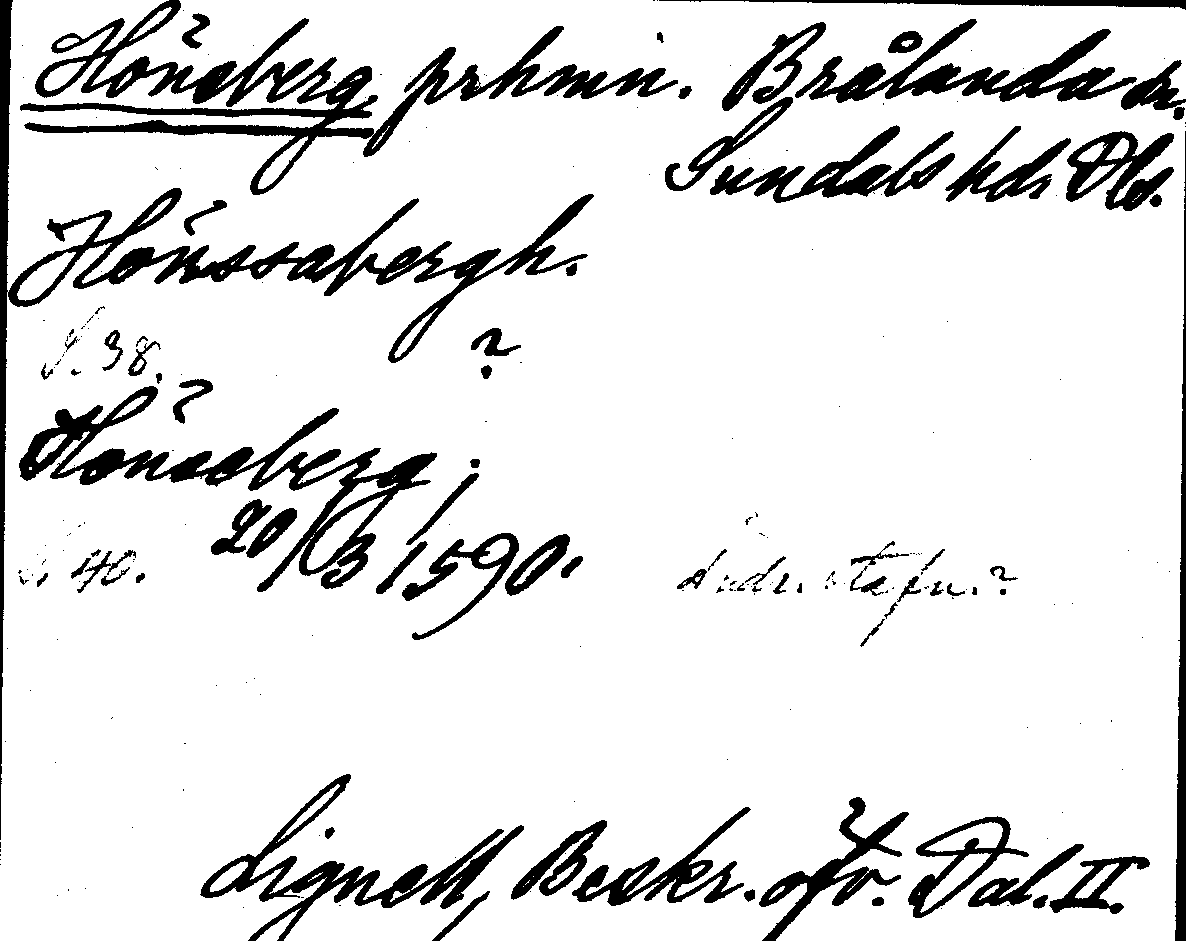 Hönsberg prhmn. Brålanda sn.
Sundals hd Dls.
Hönssabergh.
S. 38. ?
Hönsaberg,
S. 40. 20/3 1590. Ändr. stafn.?
Lignell, Beskr. öfv. Dal. II.